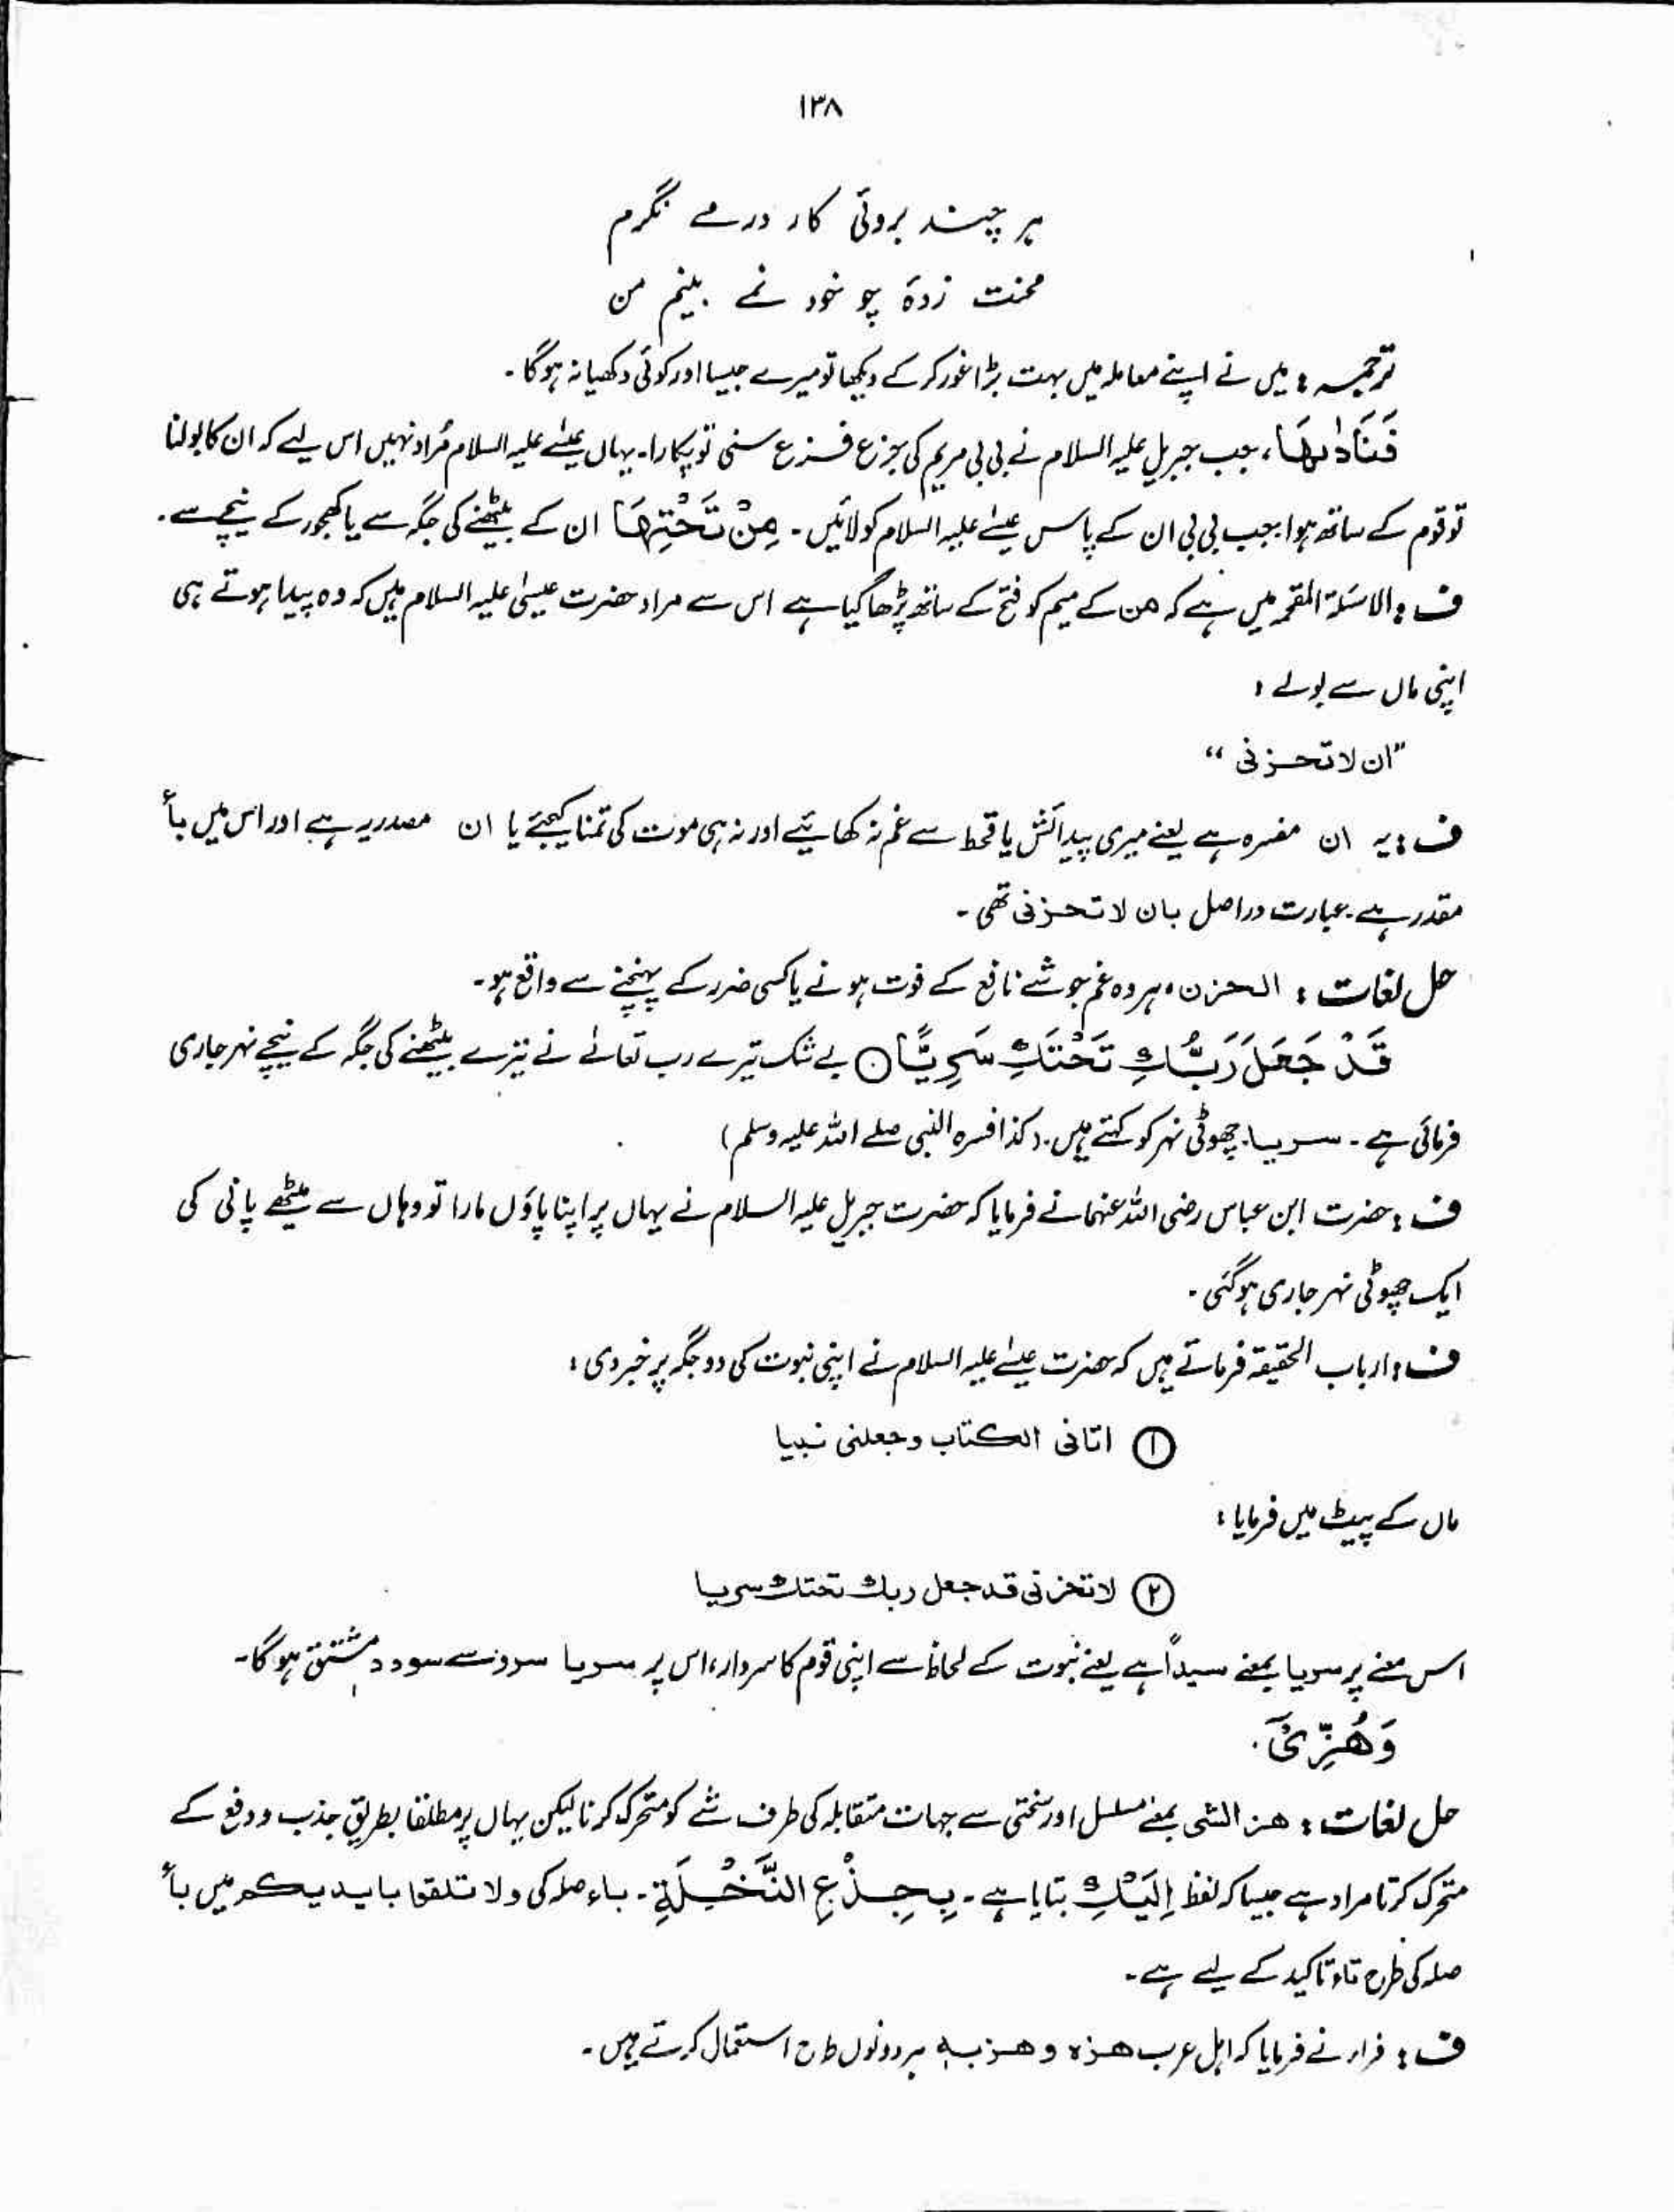 ۱۳۸
ہر چند بروئی کار درمے نگرم
محنت زدۂ چو خود نمے بینم من
ترجمہ : میں نے اپنے معاملہ میں بہت بڑا غور کر کے دیکھا تو میرے جیسا اور کوئی دکھیا نہ ہو گا ۔
فَنَادٰىهَا، جب جبریل علیہ السلام نے بی بی مریم کی جزع فزع سنی تو پکارا۔ یہاں عیسٰے علیہ السلام مُراد نہیں اس لیے کہ ان کا بولنا
تو قوم کے ساتھ ہوا جب بی بی ان کے پاس عیسٰے علیہ السلام کو لائیں ۔ مِنْ تَحْتِهَا ان کے بیٹھنے کی جگہ سے یا کھجور کے نیچے سے ۔
ف : الاسئلۃ المقحمہ میں ہے کہ من کے میم کو فتح کے ساتھ پڑھا گیا ہے اس سے مراد حضرت عیسیٰ علیہ السلام ہیں کہ وہ پیدا ہوتے ہی
اپنی ماں سے بولے :
"ان لا تحزنی "
ف : یہ ان مفسرہ ہے یعنے میری پیدائش یا قحط سے غم نہ کھائیے اور نہ ہی موت کی تمنا کیجئے یا ان مصدریہ ہے اور اس میں بأ
مقدر ہے ۔ عبارت دراصل بان لا تحزنی تھی ۔
حل لغات : الحزن، ہر وہ غم جو شے نافع کے فوت ہونے یا کسی ضرر کے پہنچنے سے واقع ہو ۔
قَدْ جَعَلَ رَبُّكِ تَحْتَكِ سَرِيًّا ○ بے شک تیرے رب تعالٰے نے تیرے بیٹھنے کی جگہ کے نیچے نہر جاری
فرمائی ہے ۔ سریا ۔ چھوٹی نہر کو کہتے ہیں ۔ (کذا فسرہ النبی صلے اللہ علیہ وسلم)
ف : حضرت ابن عباس رضی اللہ عنہما نے فرمایا کہ حضرت جبریل علیہ السلام نے یہاں پر اپنا پاؤں مارا تو وہاں سے میٹھے پانی کی
ایک چھوٹی نہر جاری ہو گئی ۔
ف : ارباب الحقیقۃ فرماتے ہیں کہ حضرت عیسٰے علیہ السلام نے اپنی نبوت کی دو جگہ پر خبر دی :
① اتانی الکتاب وجعلنی نبیا
ماں کے پیٹ میں فرمایا :
② لا تحزنی قد جعل ربك تحتك سریا
اس معنے پر سریا بمعنے سیداً ہے یعنے نبوت کے لحاظ سے اپنی قوم کا سردار، اس پر سریا سرو سے مشتق ہو گا ۔
وَهُزِّيْٓ ۔
حل لغات : ھز الشی بمعنے مسلسل اور سختی سے جہات متقابلہ کی طرف شے کو متحرک کرنا لیکن یہاں پر مطلقا بطریق جذب و دفع کے
متحرک کرتا مراد ہے جیسا کہ لفظ اِلَيْكِ بتایا ہے ۔ بِجِذْعِ النَّخْلَةِ ۔ باء صلہ کی ولا تلقوا بایدیکم میں بأ
صلہ کی طرح تاکید کے لیے ہے ۔
ف : فراء نے فرمایا کہ اہل عرب ھزہ و ھز بہ ہر دونوں طرح استعمال کرتے ہیں ۔